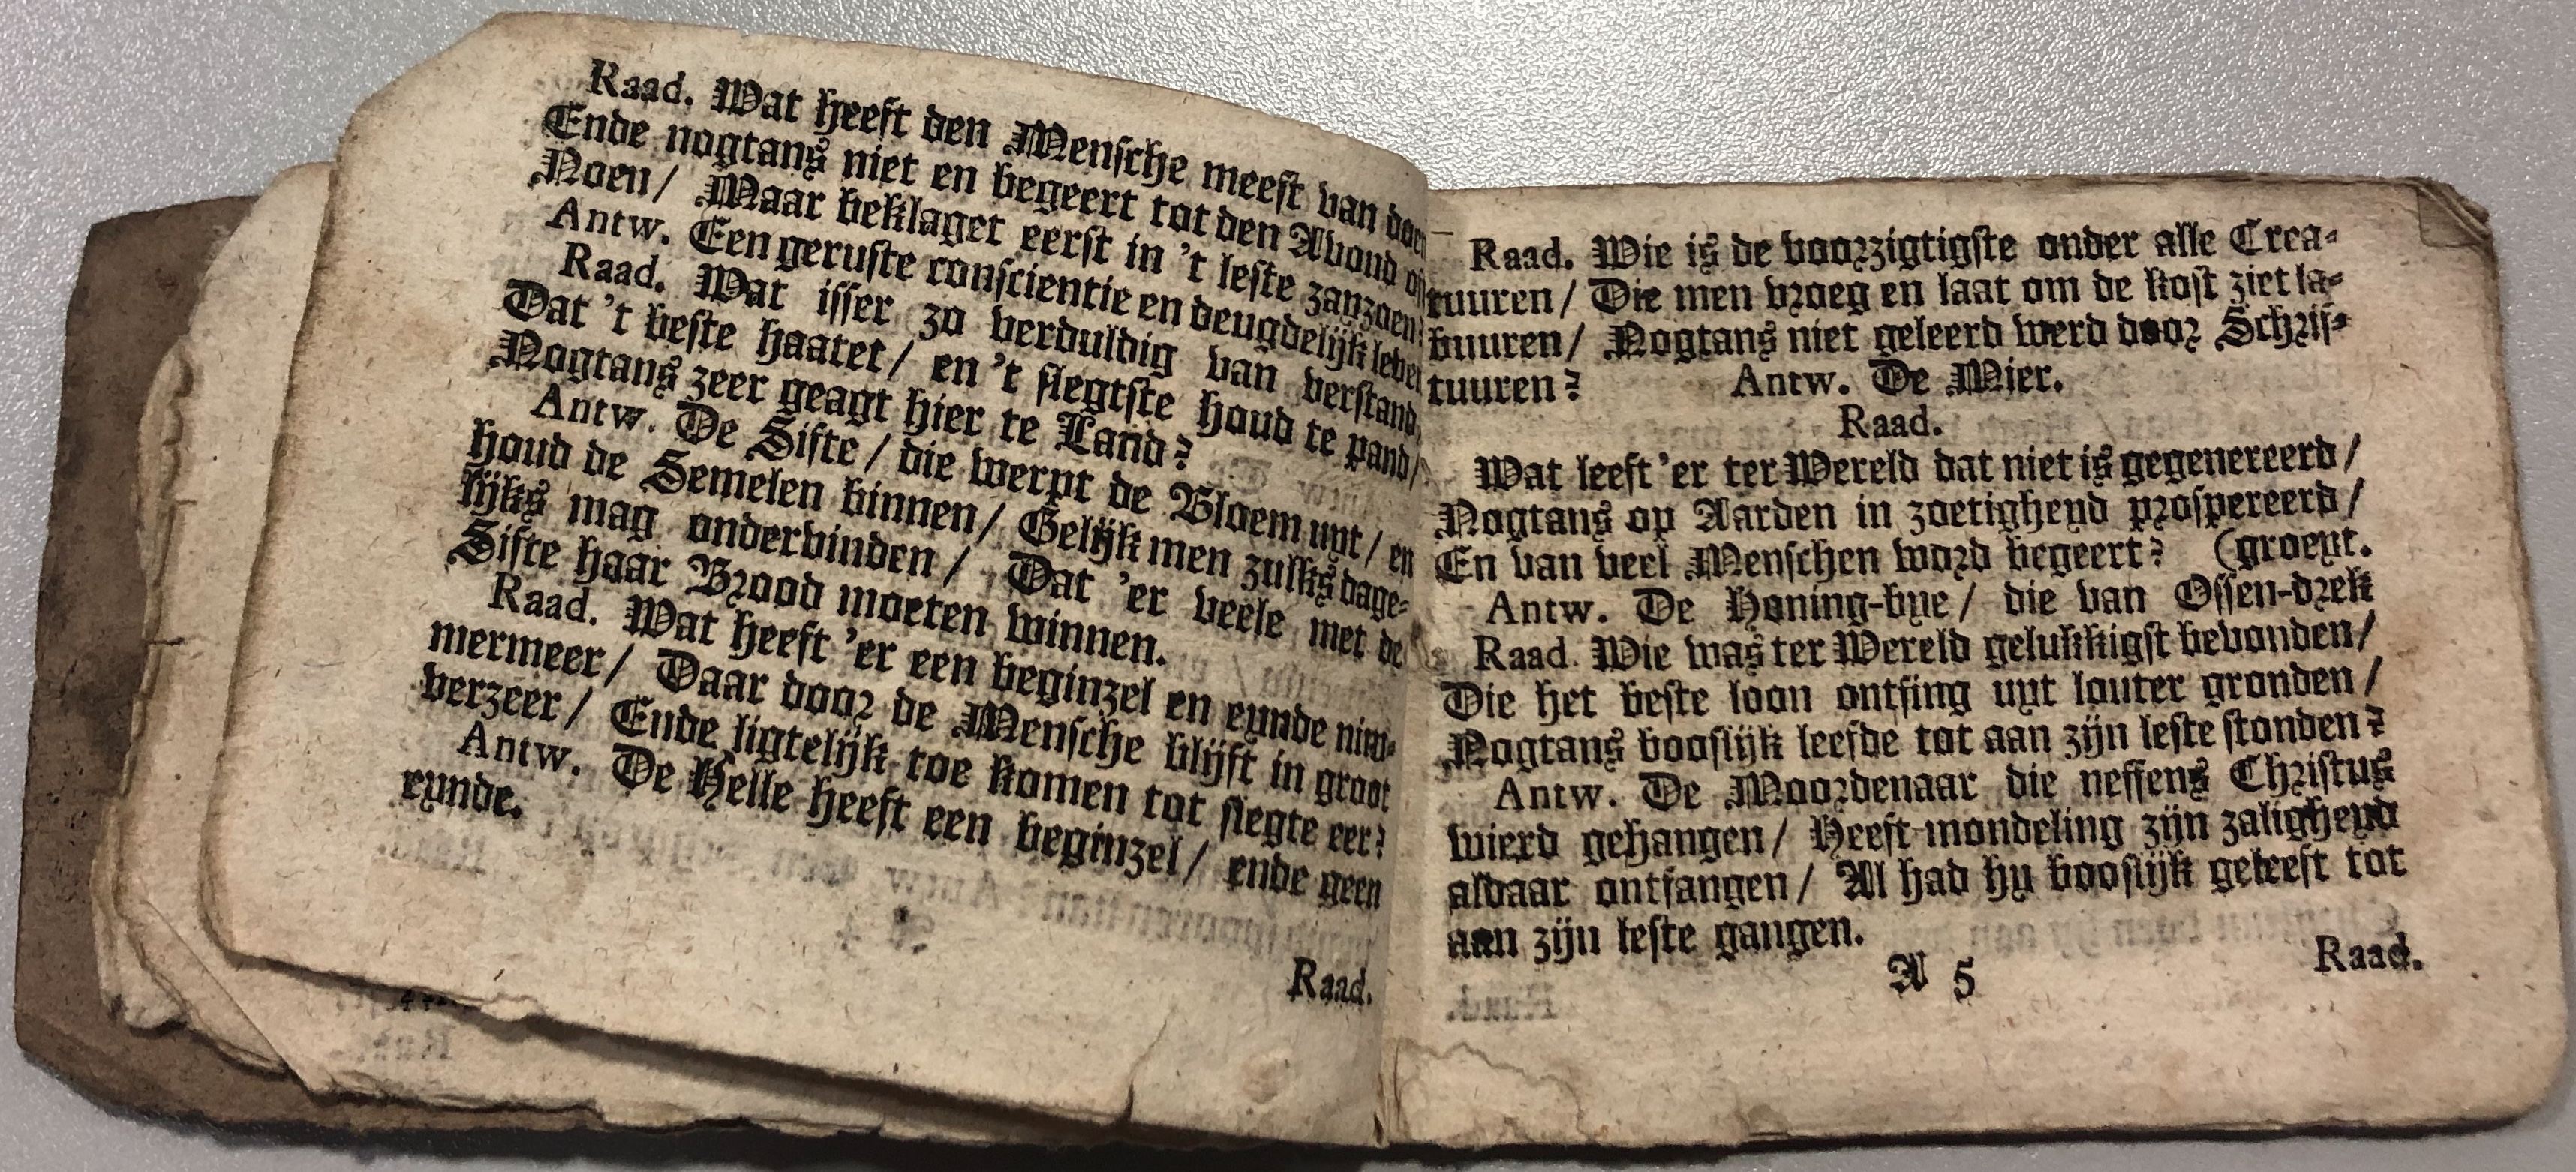 Raad. Wat heeft den Mensche meest van doen
Ende nogtans niet en begeert tot den Avond
Noen/ Maar beklaget eerst in 't leste zanzoen?
Antw. Een geruste conscientie en deugdelijk leven
Raad. Wat isser zo verduldig van verstand,
Dat 't beste haatet/ en 't slegtste houd te pand/
Nogtans zeer geagt hier te Land?
Antw. De Sifte/ die werpt de Bloem uyt/ en
houd de Semelen binnen/ Gelijk men zulks dage-
lijks mag ondervinden/ Dat 'er veele met de
Sifte haar Brood moeten winnen.
Raad. Wat heeft 'er een beginzel en eynde nim-
mermeer/ Daar door de Mensche blijft in groot
verzeer/ Ende ligtelijk toe komen tot slegte eer?
Antw. De Helle heeft een beginzel/ ende geen
eynde.
Raad.
Raad. Wie is de voorzigtigste onder alle Crea-
tuuren/ Die men vroeg en laat om de kost ziet la-
buuren/ Nogtans niet geleerd werd door Schrif-
tuuren? Antw. De Mier.
Raad.
Wat leeft 'er ter Wereld dat niet is gegenereerd/
Nogtans op Aarden in zoetigheyd prospereerd/
En van veel Menschen word begeert? (groeyt.
Antw. De Honing-bye/ die van Ossen-drek
Raad. Wie was ter Wereld gelukkigst bevonden/
Die het beste loon ontfing uyt louter gronden/
Nogtans booslijk leefde tot aan zijn leste stonden?
Antw. De Moordenaar die neffens Christus
wierd gehangen/ Heeft mondeling zijn zaligheyd
aldaar ontfangen/ Al had hy booslijk geleeft tot
aan zijn leste gangen.
A 5 Raad.